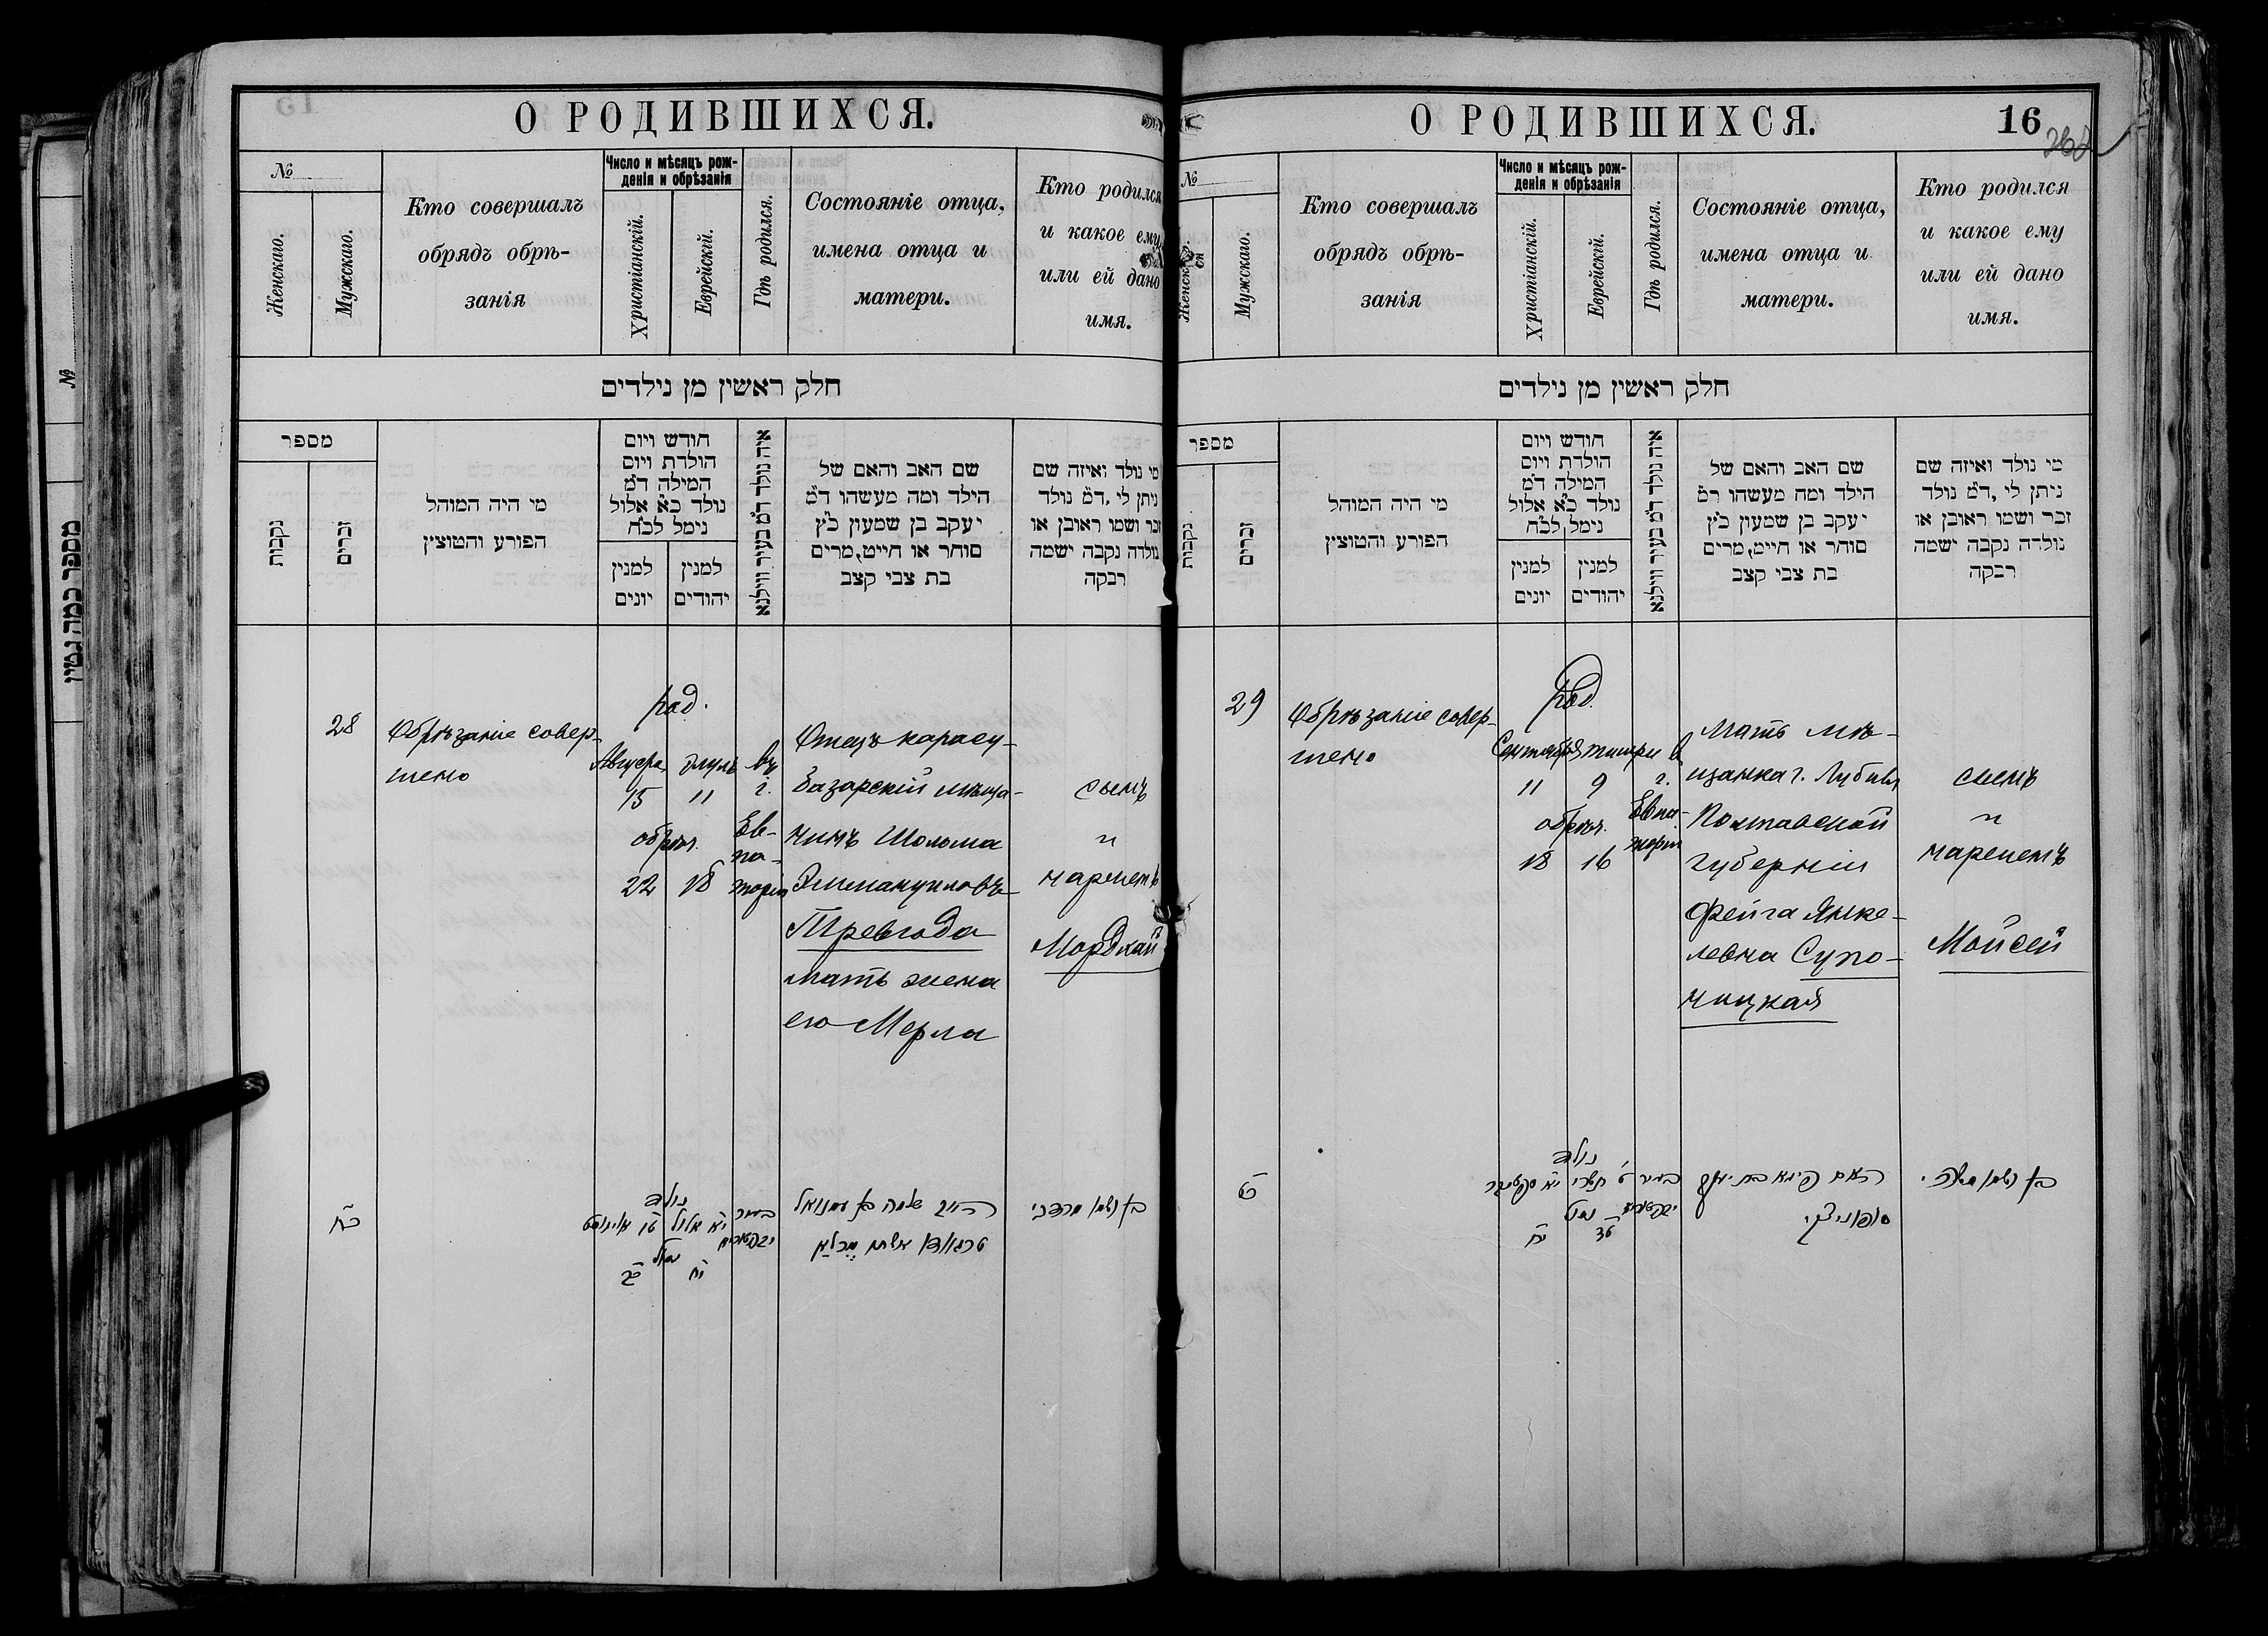 О РОДИВШИХСЯ.
№
Женскаго.
Мужскаго.
Кто совершалъ
обрядъ обрѣ-
занія
Число и мѣсяцъ рож-
денія и обрѣзанія
Христіанскій.
Еврейскій.
Гдѣ родился.
Состояніе отца,
имена отца и
матери.
Кто родился
и какое ему
или ей дано
имя.
חלק ראשין מן נילדים
מספר
נקבות
זכרים
מי היה המוהל
הפורע והמוצץ
חודש ויום
הולדת ויום
המילה ד״מ
נולד כ״א אלול
נימל לכ״ח
למנין
יונים
למנין
יהודים
איה נולד ד״מ בעיר ווילנא
שם האב והאם של
הילד ומה מעשהו ד״מ
יעקב בן שמעון כ״ץ
סוחר או חייט, מרים
בת צבי קצב
מי נולד ואיזה שם
ניתן לי, ד״מ נולד
זכר ושמו ראובן או
נולדה נקבה ישמה
רבקה
28
Обрѣзаніе совер-
шено
род.
Августа
15
элуль
11
обрѣз.
22
18
въ
г.
Ев-
па-
торіи
Отецъ карасу-
базарскій мѣща-
нинъ Шолома
Эммануиловъ
Тревгода
мать жена
его Мерла
сынъ
и
нареченъ
Мордхай
כ״ח
נולד
ט״ו אויגוסט
י״א אלול
נמול
כ״ב
י״ח
בעיר
האב שלמה בן עמנואל
בן ושמו מרדכי
О РОДИВШИХСЯ.
16
№
Женскаго.
Мужскаго.
Кто совершалъ
обрядъ обрѣ-
занія
Число и мѣсяцъ рож-
денія и обрѣзанія
Христіанскій.
Еврейскій.
Гдѣ родился.
Состояніе отца,
имена отца и
матери.
Кто родился
и какое ему
или ей дано
имя.
חלק ראשין מן נילדים
מספר
נקבות
זכרים
מי היה המוהל
הפורע והמוצץ
חודש ויום
הולדת ויום
המילה ד״מ
נולד כ״א אלול
נימל לכ״ח
למנין
יונים
למנין
יהודים
איה נולד ד״מ בעיר ווילנא
שם האב והאם של
הילד ומה מעשהו ד״מ
יעקב בן שמעון כ״ץ
סוחר או חייט, מרים
בת צבי קצב
מי נולד ואיזה שם
ניתן לי, ד״מ נולד
זכר ושמו ראובן או
נולדה נקבה ישמה
רבקה
29
Обрѣзаніе совер-
шено
род.
Сентября
11
тишри
9
обрѣз.
18
16
в
г.
Евпа-
торіи
Мать мѣ-
щанка г. Лубны
Полтавской
губерніи
Фейга Янке-
левна Супо-
ницкая
сынъ
и
нареченъ
Мойсей
נולד
ט׳ תשרי
נמול
י״ח
ט״ז
בעיר
האם פייגא בת יעקב
סופוניצקי
בן ושמו משה.